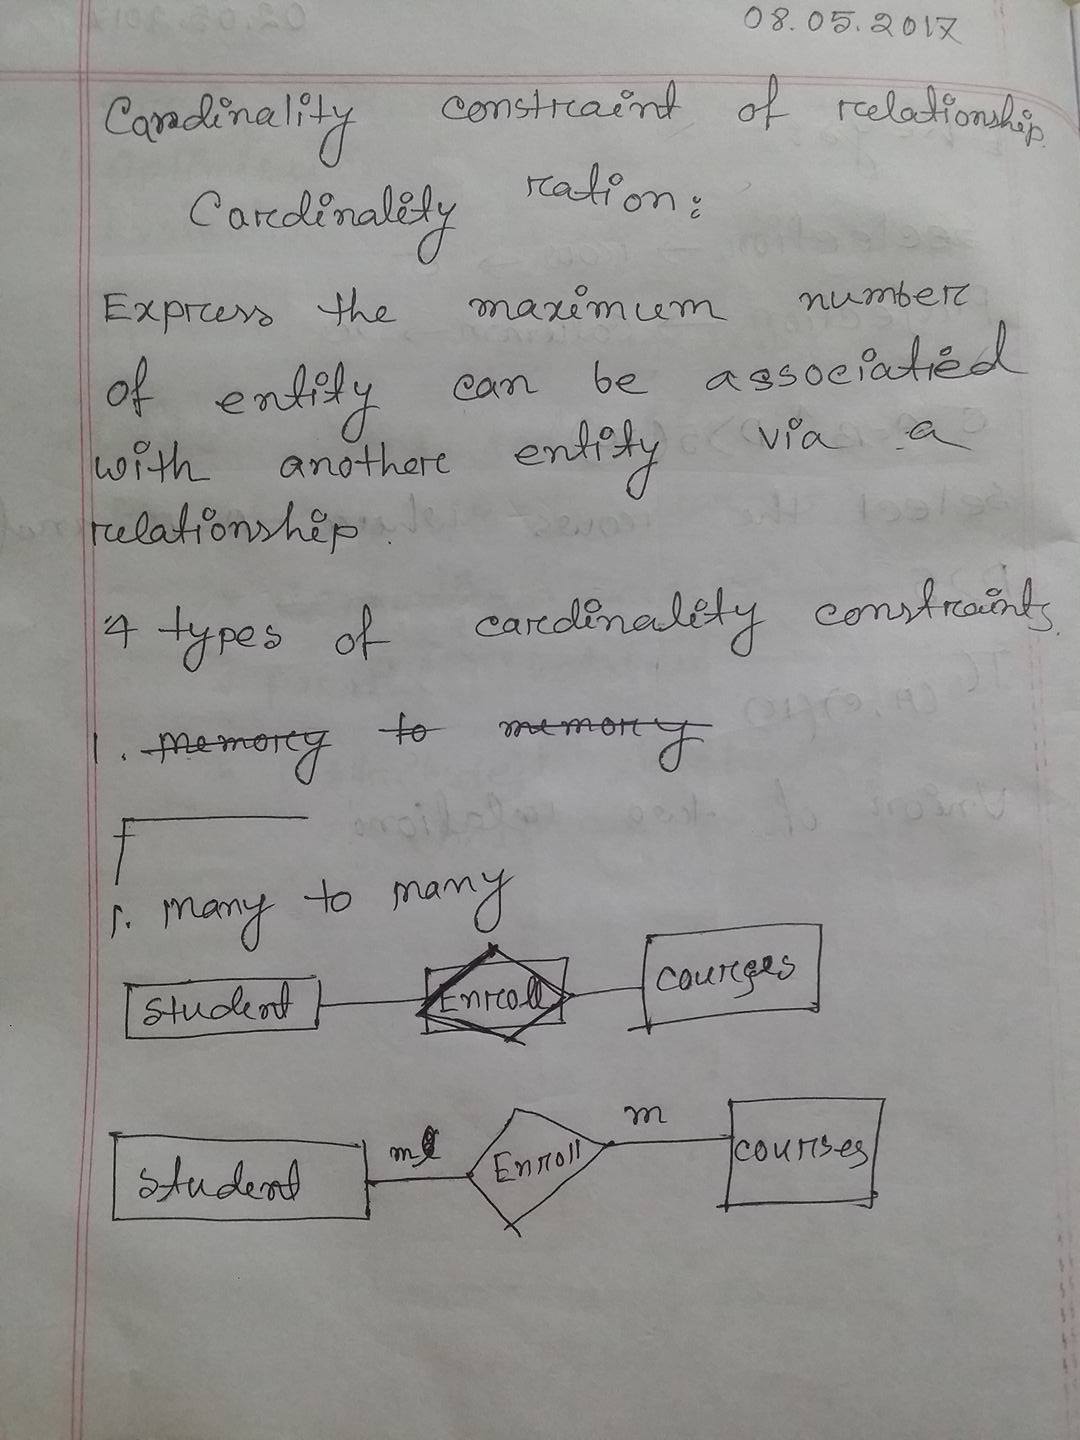 08.05.2017
Cardinality constraint of relationship.
Cardinality ration:
Express the maximum number
of entity can be associatied
with another entity via a
relationship.
4 types of cardinality constraints.
1. memory to memory
1. many to many
Student Enroll courses
Student m Enroll m courses